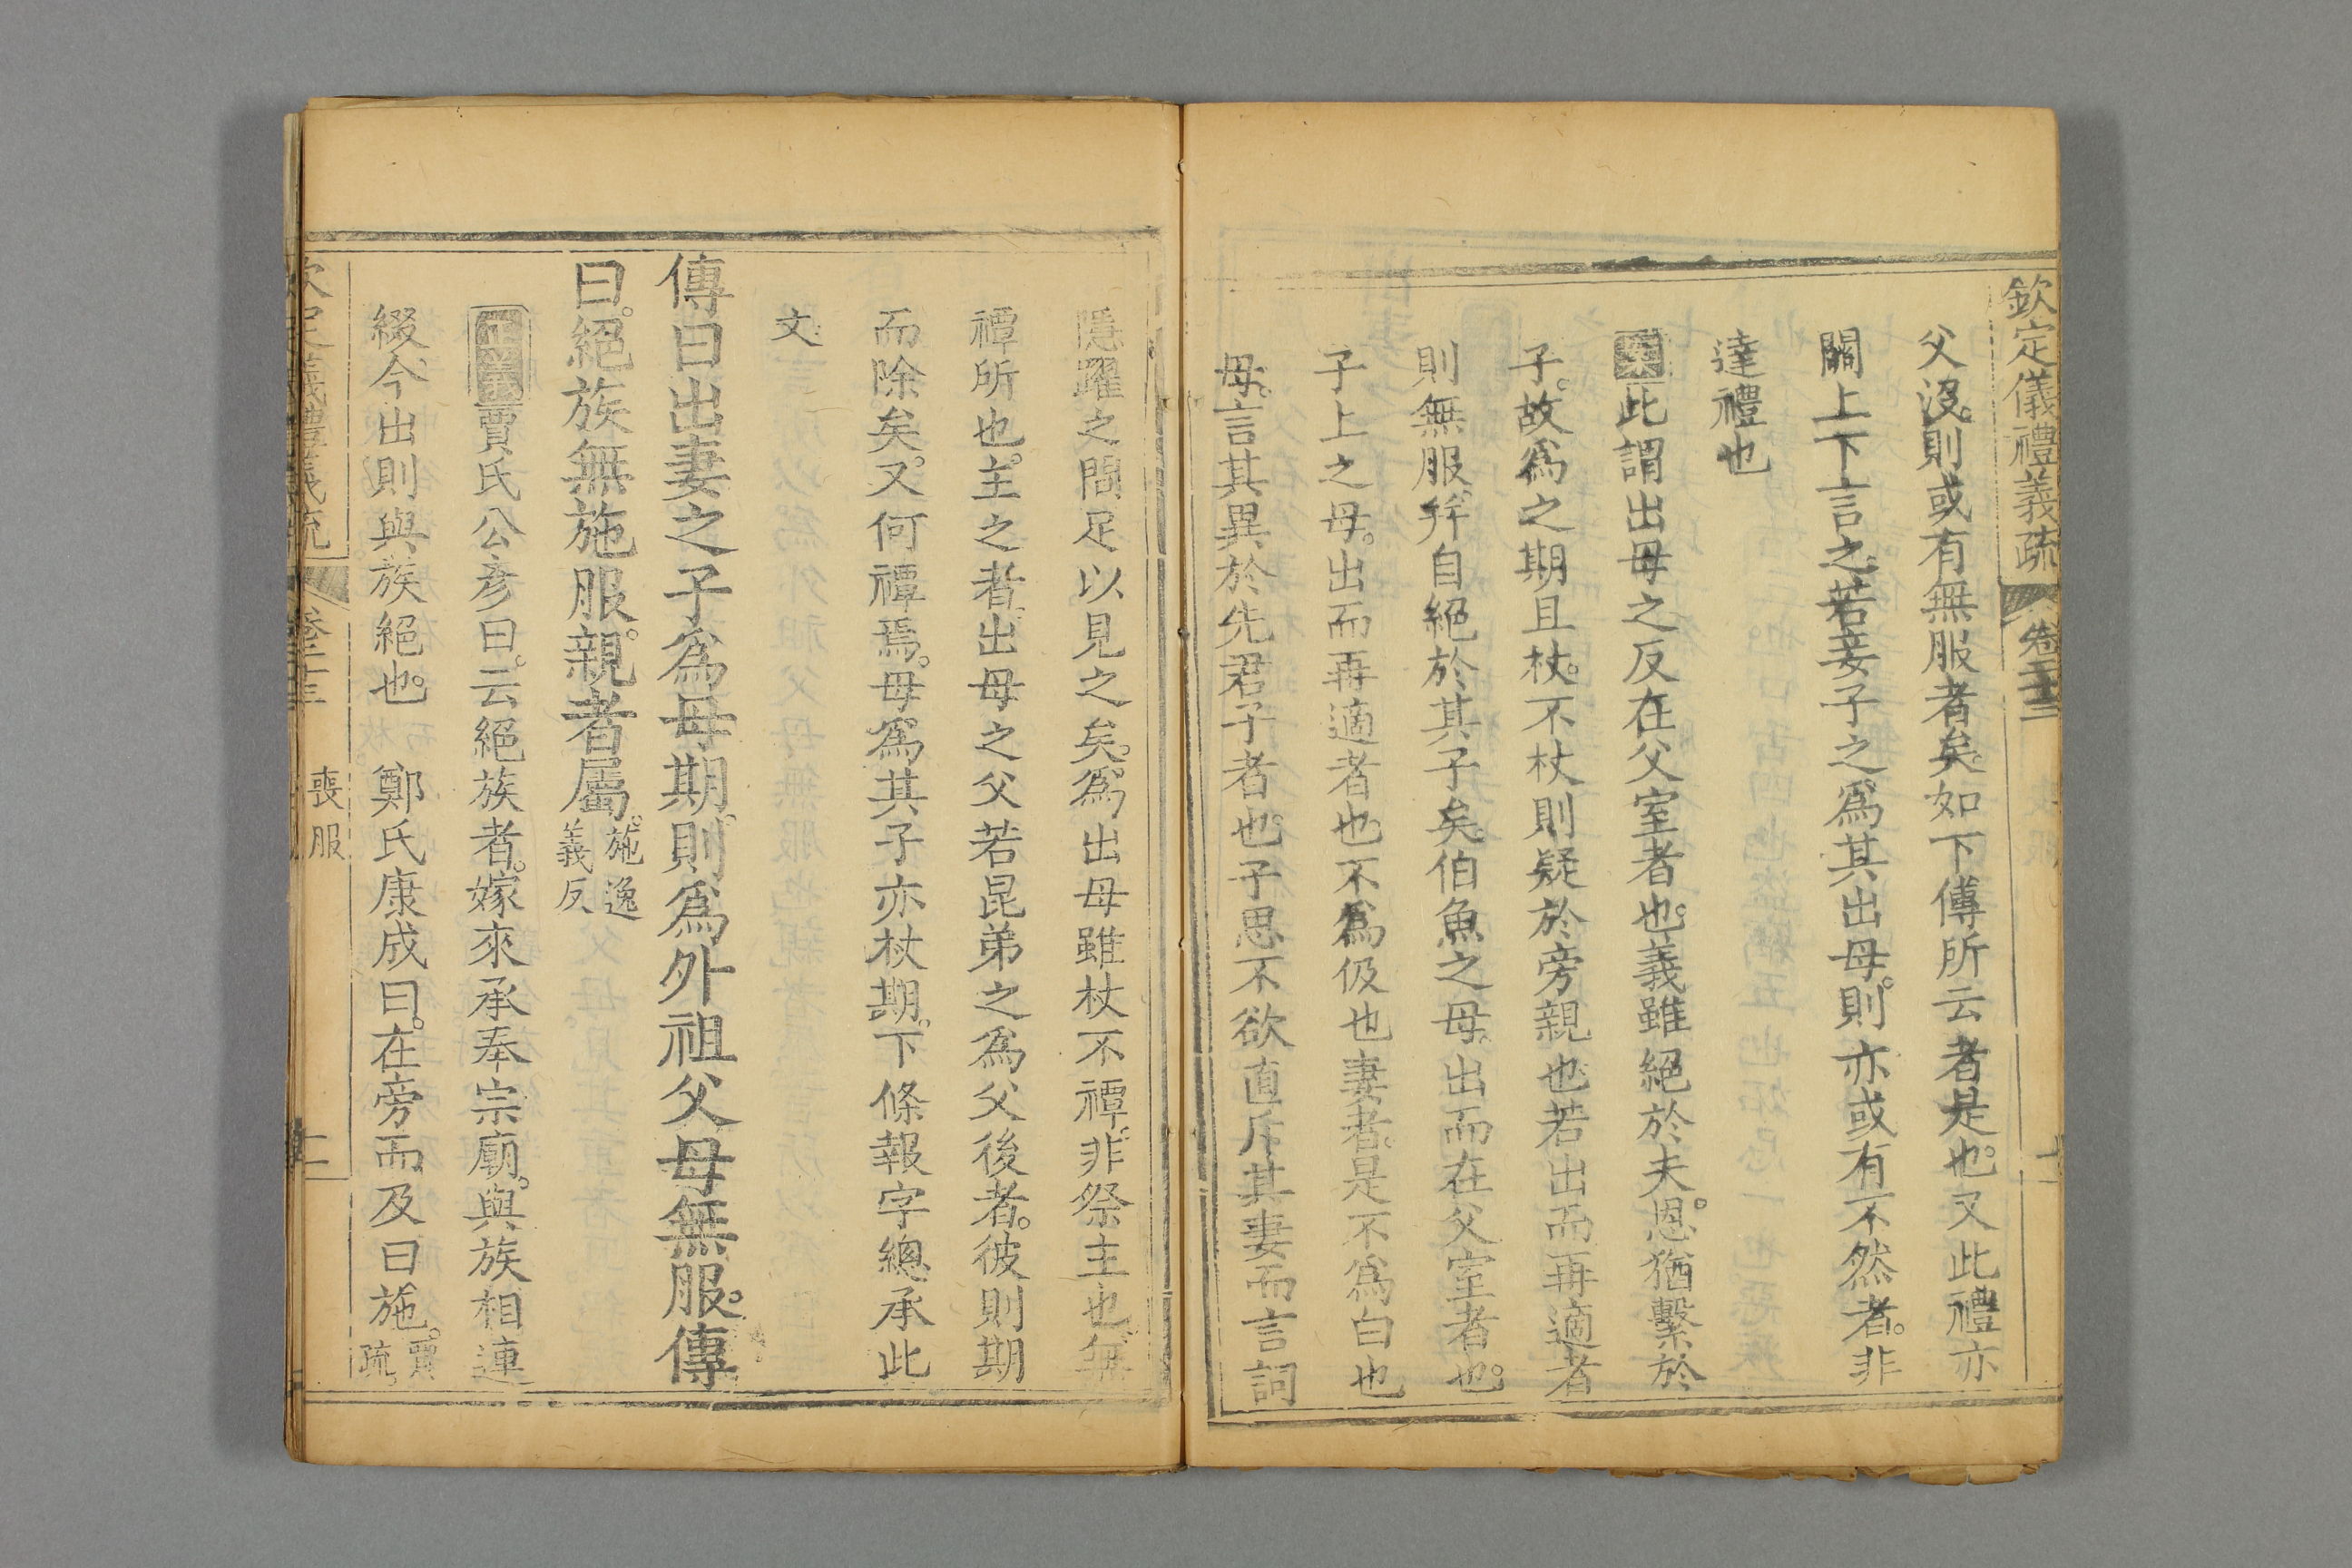 欽定儀禮義疏 卷二十三
父沒。則或有無服者矣。如下傳所云者是也。又此禮亦
關上下言之。若妾子之爲其出母。則亦或有不然者。非
達禮也
案此謂出母之反在父室者也。義雖絕於夫。恩猶繫於
子。故爲之期且杖。不杖則疑於旁親也。若出而再適者
則無服。弁自絕於其子矣。伯魚之母。出而在父室者也。
子上之母。出而再適者也。不爲伋也妻者。是不爲白也
母。言其異於先君子者也。子思不欲直斥其妻而言詞
隱躍之間足以見之矣。爲出母雖杖不禫。非祭主也。無
禫所也。主之者。出母之父若昆弟之爲父後者。彼則期
而除矣。又何禫焉。母爲其子亦杖期。下條報字總承此
文
傳曰出妻之子爲母期。則爲外祖父母無服。傳
曰。絕族無施服。親者屬。施逸義反
正義賈氏公彥曰。云絕族者。嫁來承奉宗廟。與族相連
綴。今出則與族絕也。 鄭氏康成曰。在旁而及曰施。賈疏
欽定儀禮義疏 卷二十三 喪服 十一